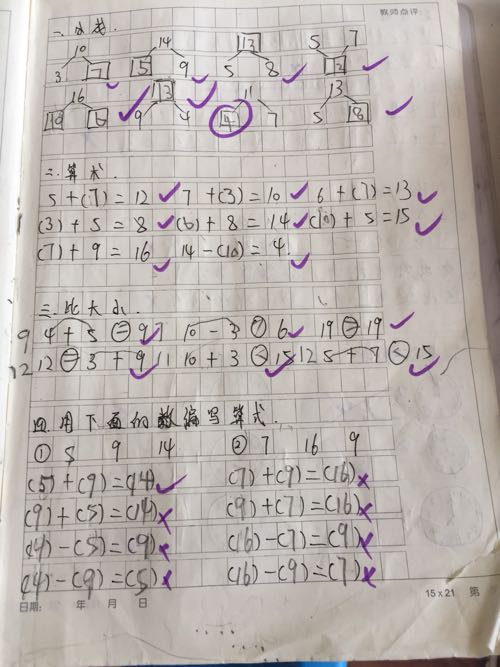 教师点评:
一、分成.
10 14 13 5 7
3 7 5 9 5 8 12
16 13 11 13
10 6 9 4 4 7 5 8
二.算术.
5+(7)=12 7+(3)=10 6+(7)=13
(3)+5=8 (6)+8=14 (10)+5=15
(7)+9=16 14-(10)=4.
三.比大小.
9 4+5=9 7 10-3>6 19=19
12 12=3+9 11 10+3<15 12 5+7<15
四.用下面的数编写算式.
① 5 9 14 ② 7 16 9
(5)+(9)=(14) (7)+(9)=(16)
(9)+(5)=(14) (9)+(7)=(16)
(14)-(5)=(9) (16)-(7)=(9)
(14)-(9)=(5) (16)-(9)=(7)
日期: 年 月 日 15x21 第